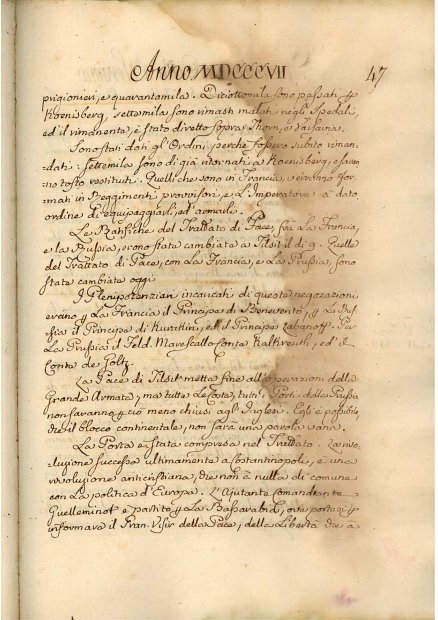 Anno MDCCCVII
47
prigionieri, e quarantamila. Diciottomila sono passati p
Koenisberg, settemila sono rimasti malati negli Spedali,
ed il rimanente, è stato diretto sopra Thorn, e Varsavia.
Sono stati dati gl'Ordini perchè fossero subito riman-
dati: settemila sono di già ritornati a Koenisberg, e saran-
no tosto restituiti. Quelli che sono in Francia, veranno for-
mati in Reggimenti provvisori, e l'Imperatore à dato
ordine di equipaggiarli, ed armarli.
Le Ratifiche del Trattato di Pace, fra la Francia,
e la Russia, erono state cambiate a Tilsit il di 9. Quelle
del Trattato di Pace, con la Francia, e la Prussia, sono
state cambiate oggi
I Plenipotenziari incaricati di queste negoziazioni
erano p La Francia il Principe di Benevento, p La Rus-
sia il Principe di Kurakin, ed il Principe Labanoff. Per
La Prussia il Feld. Marescallo Conte Kalkreuth, ed il
Conte de Goltz.
La Pace di Tilsit mette fine all'operazioni della
Grande Armata, ma tutte le Coste, tutti i Porti della Prussia
non saranno p ciò meno chiusi agl'Inglesi. Egli è possibile
che il blocco continentale, non sarà una parola vana.
La Porta è stata compresa nel Trattato. La rivo-
luzione successa ultimamente a Costantinopoli, è una
rivoluzione anticristiana, che non à nulla di comune
con la politica d'Europa. L'Ajutante Comandante
Guilleminot è partito p La Bassarabia, ove porta
informava il Gran Visir della Pace, della Libertà che à